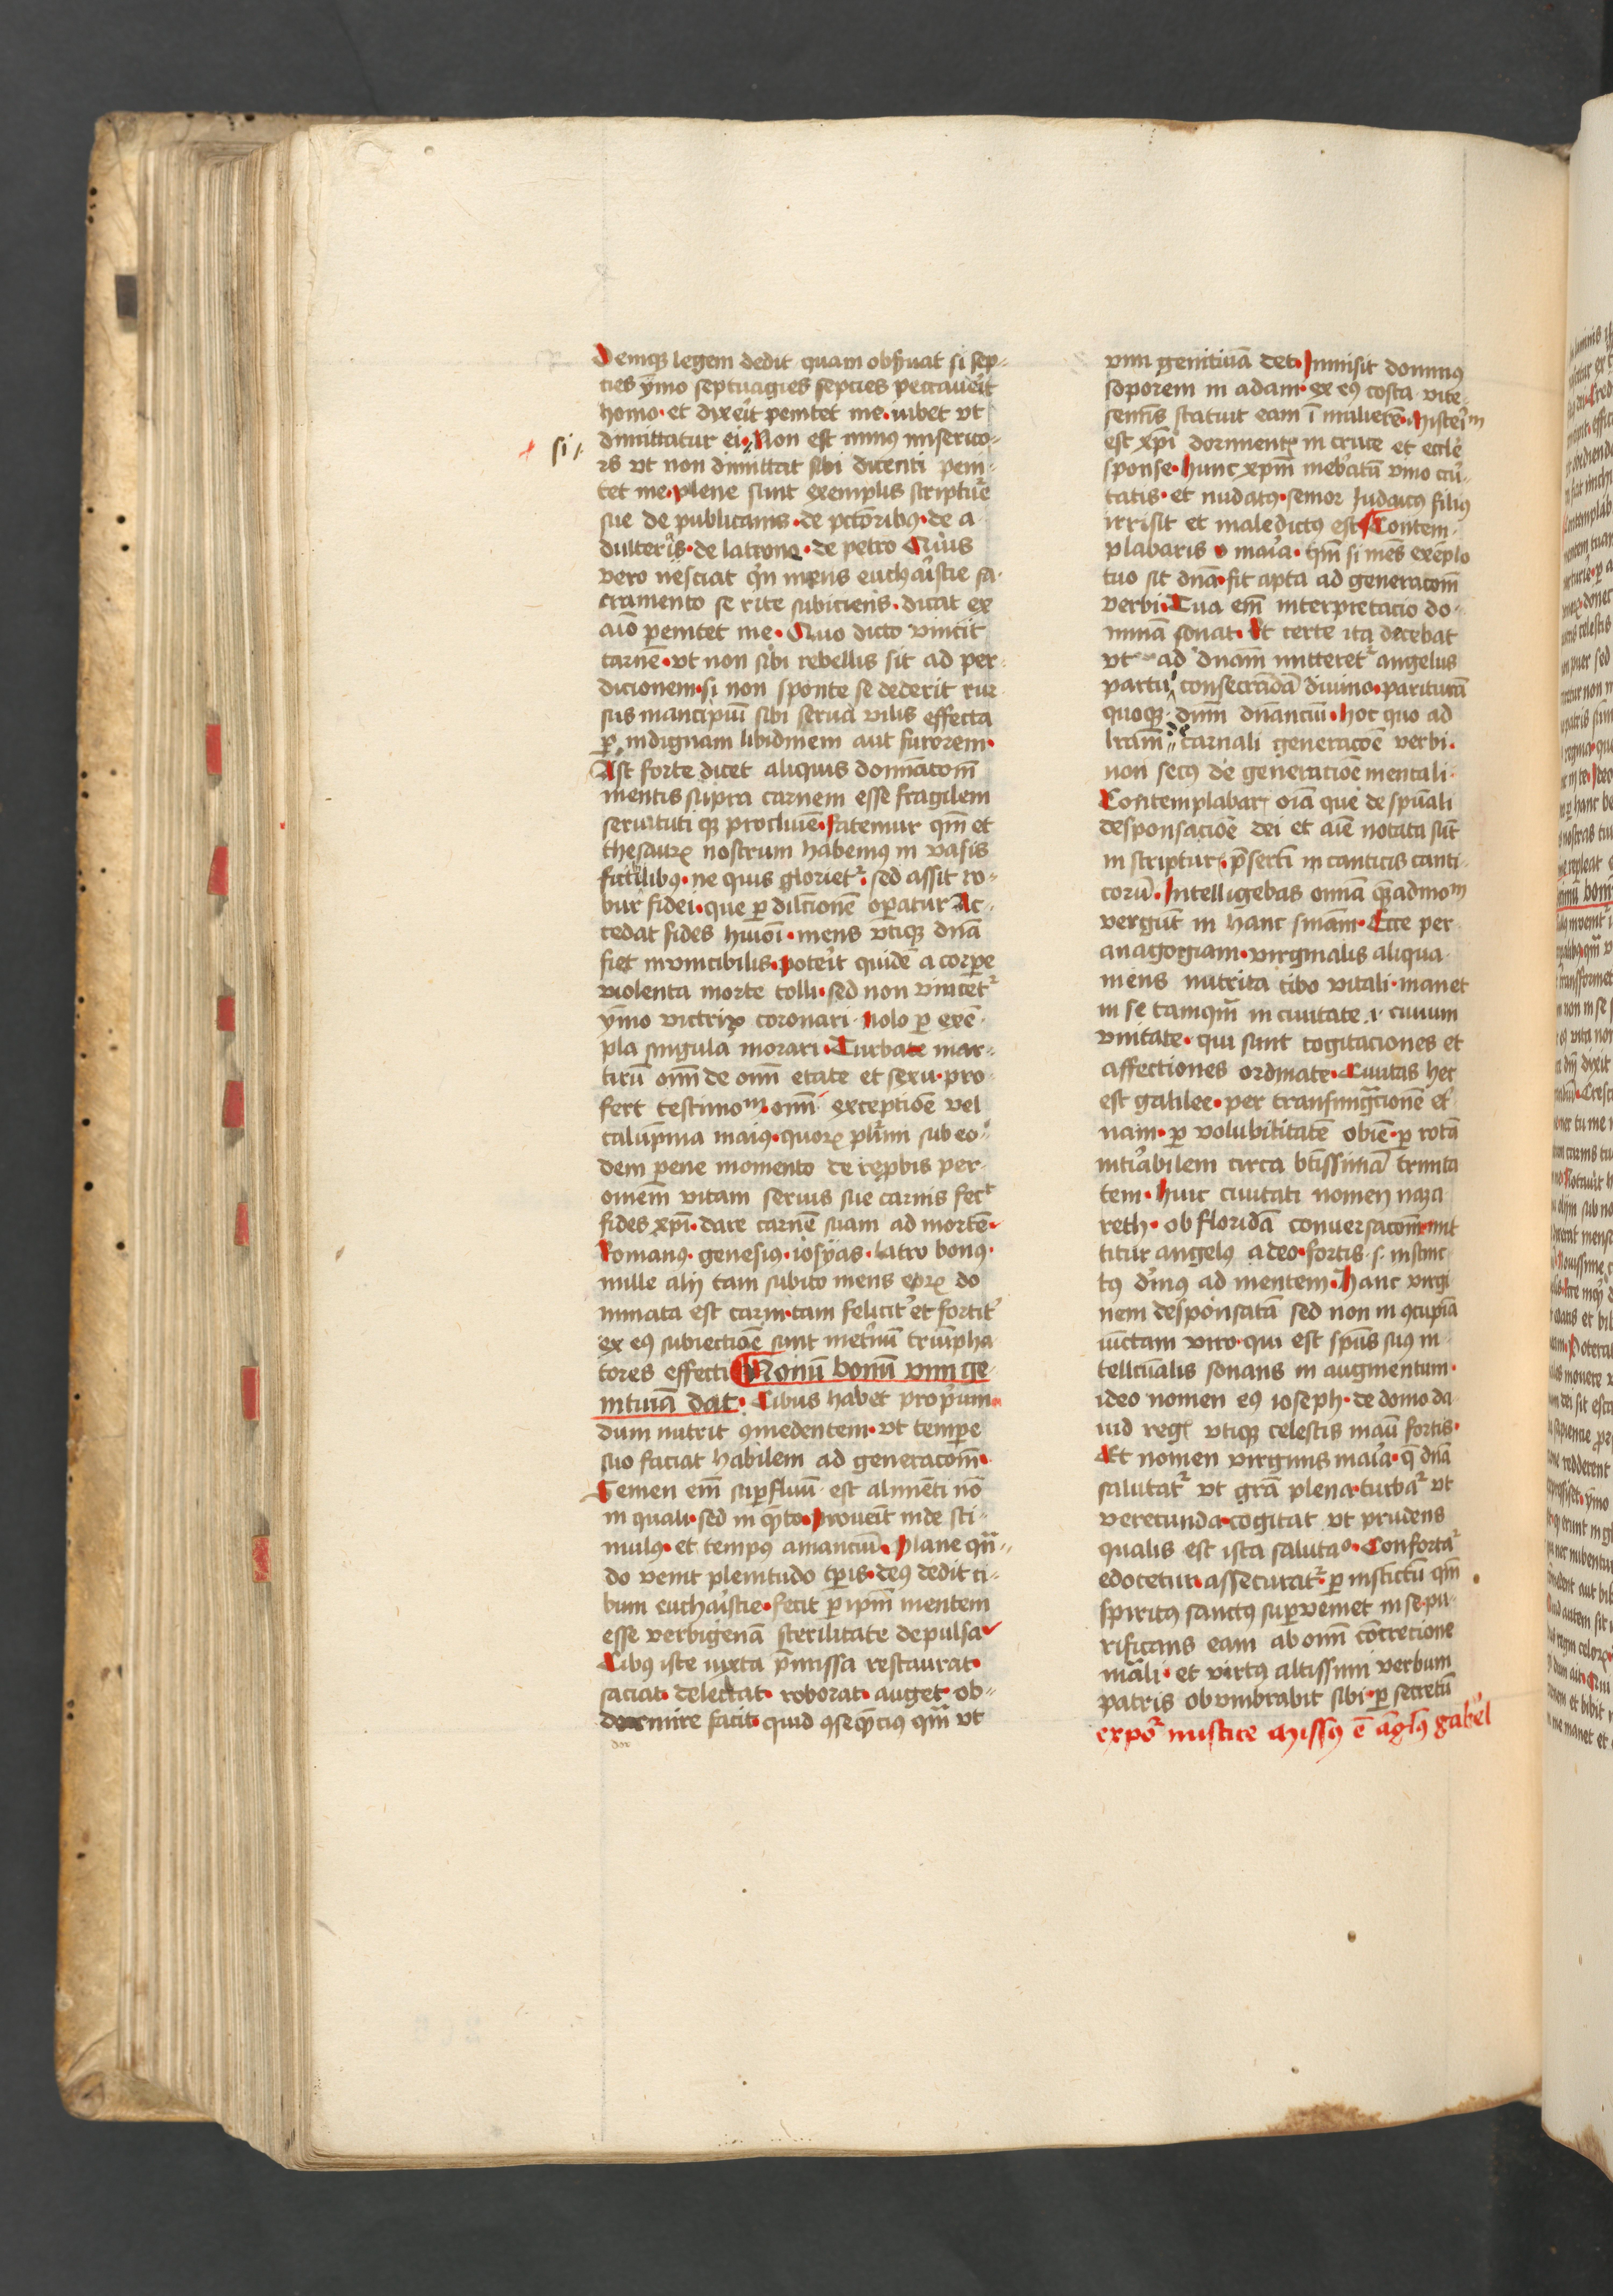 Demq; legem dedit quam obs̄uat si sep-
ties ȳmo septuagies septies peccaueīt
homo. et dixeīt penitet me. iubet vt
dimittatur ei. Non est minus miserico-
si
rs vt non dimittat sibi dicenti peni-
tet me. plene sunt exemplis scripture
sue de publicanis. de pctōribus. de a
dulteris. de latrone. de petro Quis
vero nesciat qn mens eucharistie sa-
cramento se rite subiciens. dicat ex
aīo penitet me. Quo dicto vincit
carnē. vt non sibi rebellis sit ad per-
dicionem. si non sponte se dederit rur
sus mancipiū sibi serua vilis effecta
ꝑ indignam libidinem aut furorem.
Ast forte dicet aliquis domīacōm
mentis supra carnem esse fragilem
seruituti qꝫ procliuē. fatemur qm̄ et
thesaurꝝ nostrum habemꝰ in vasis
fictilibꝰ. ne quis glorietr. sed assit ro-
bur fidei. que ꝑ dilcīonē operatur Ac-
cedat fides huiōi. mens vtiqꝫ dnā
fiet inuincibilis. poteīt quidē a corpere
violenta morte tolli. sed non vincetr
ȳmo victrix coronari. nolo ꝑ exē-
pla singula morari. Turbate mar-
tirū om̄ de om̄ etate et sexu. pro
fert testimom̄. om̄ exceptiōe vel
calūpnia maius. quorꝝ plīmi sub eo-
dem pene momento de reprobis per
omēm vitam seruis sue carnis fect
fides xp̄i. dare carnē suam ad mortē.
Romanꝰ. genesius. iosyas. latro bonꝰ.
mille alij tam subito mens eorꝝ do
minata est carni. tam felicitʾ et fortitʾ
ex eꝰ subiectiōe sunt metīnū triūpha
tores effecti Nonū bonū vim ge-
nitiuā dat. Cibus habet proprium.
dum nutrit ꝯmedentem. vt tempere
suo faciat habilem ad generacōm.
Semen em̄ suꝑfluū est alimēti nō
in quali. sed in qᷓto. Proueīt inde sti-
mulꝰ. et tempꝰ amanciū. Plane qn̄-
do venit plenitudo tꝑis. deꝰ dedit ci-
bum eucharistie. fecit ꝑ ipm̄ mentem
esse verbigenā sterilitate depulsa
Cibꝰ iste iuxta p̄missa restaurat.
saciat. delectat. roborat. auget. ob-
dormire facit. quid ꝯseqᷓcius qm̄ vt
dor
vim genitiuā det. Immisit dominꝰ
soporem in adam. ex eꝰ costa vite
sementis statuit eam ī mulierē. Misteīm
est xp̄i dormientꝭ in cruce et eccle
sponse. hunc xp̄m inebriatū vino cūi
tatis. et nudatꝰ. senior Judaicꝰ filiꝰ
irrisit et maledictꝰ est Contem-
plabaris o maīa. qm̄ si mēs exēplo
tuo sit dnā. fit apta ad generacōm
verbi. Tua em̄ interpretacio do-
minā sonat. Et certe ita decebat
vt ad dnām mitteretr angelus
partui consecrandā diuino. parituram
quoqꝫ dnm̄ dnānciū. hoc quo ad
lrām de carnali generacōe verbi.
non secꝰ de generatiōe mentali.
Contemplabarꝭ oīa que de spūali
desponsacōe dei et aīe notata sūt
in scripturꝭ. p̄sertī in canticis canti
corū. Intelligebas omīa qᷓadmom̄
vergūt in hanc sniām. Ecce per
anagogiam. virginalis aliqua
mens nutrita cibo vitali. manet
in se tamqm̄ in ciuitate .i. ciuium
vnitate. qui sunt cogitaciones et
affectiones ordinate. Ciuitas hec
est galilee. per transmigracionē et
nam. ꝑ volubilitatē obiē. ꝑ rotā
intīabilem circa btīssimā trinita
tem. huic ciuitati nomen naza
reth. ob floridā conuersacōm. mit
titur angelꝰ a deo. fortis .s. instinc
tꝰ diuinꝰ ad mentem. Hanc virgi
nem desponsatā sed non in ꝯcupīa
iūctam viro. qui est spūs suꝰ in-
tellectualis sonans in augmentum.
ideo nomen eꝰ ioseph. de domo da
uid regꝭ vtiqꝫ celestis maū fortis.
Et nomen virginis maīa. qᷓ dnā
salutatr vt grā plena. turbar vt
verecunda. cogitat vt prudens
qualis est ista salutao. Confortar
edocetur. assecuratr ꝑ instīctū qm̄
spiritꝰ sanctꝰ suꝑueniet in se. pu-
rificans eam ab om̄ cōcrecione
māli. et virtꝰ altissimi verbum
patris obumbrabit sibi. ꝑ secretū
expōr mistice Missꝰ ē āglꝰ gabēl